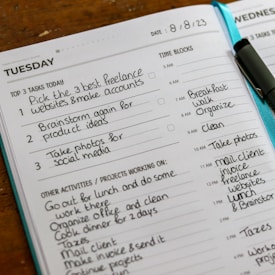 DATE: 8/8/23
TUESDAY
WEDNES
TOP 3 TASKS TODAY
TIME BLOCKS
1 Pick the 3 best freelance
websites & make accounts
2 Brainstorm again for
product ideas
3 Take photos for
social media
OTHER ACTIVITIES / PROJECTS WORKING ON:
Go out for lunch and do some
work there
Organize office and clean
Cook dinner for 2 days
Taxes
Mail client
make invoice & send it
Continue projects
Breakfast
walk
Organize
Clean
Take photos
Mail client
invoice
freelance
websites
lunch
& Brainstor
Taxes
Workou
projec